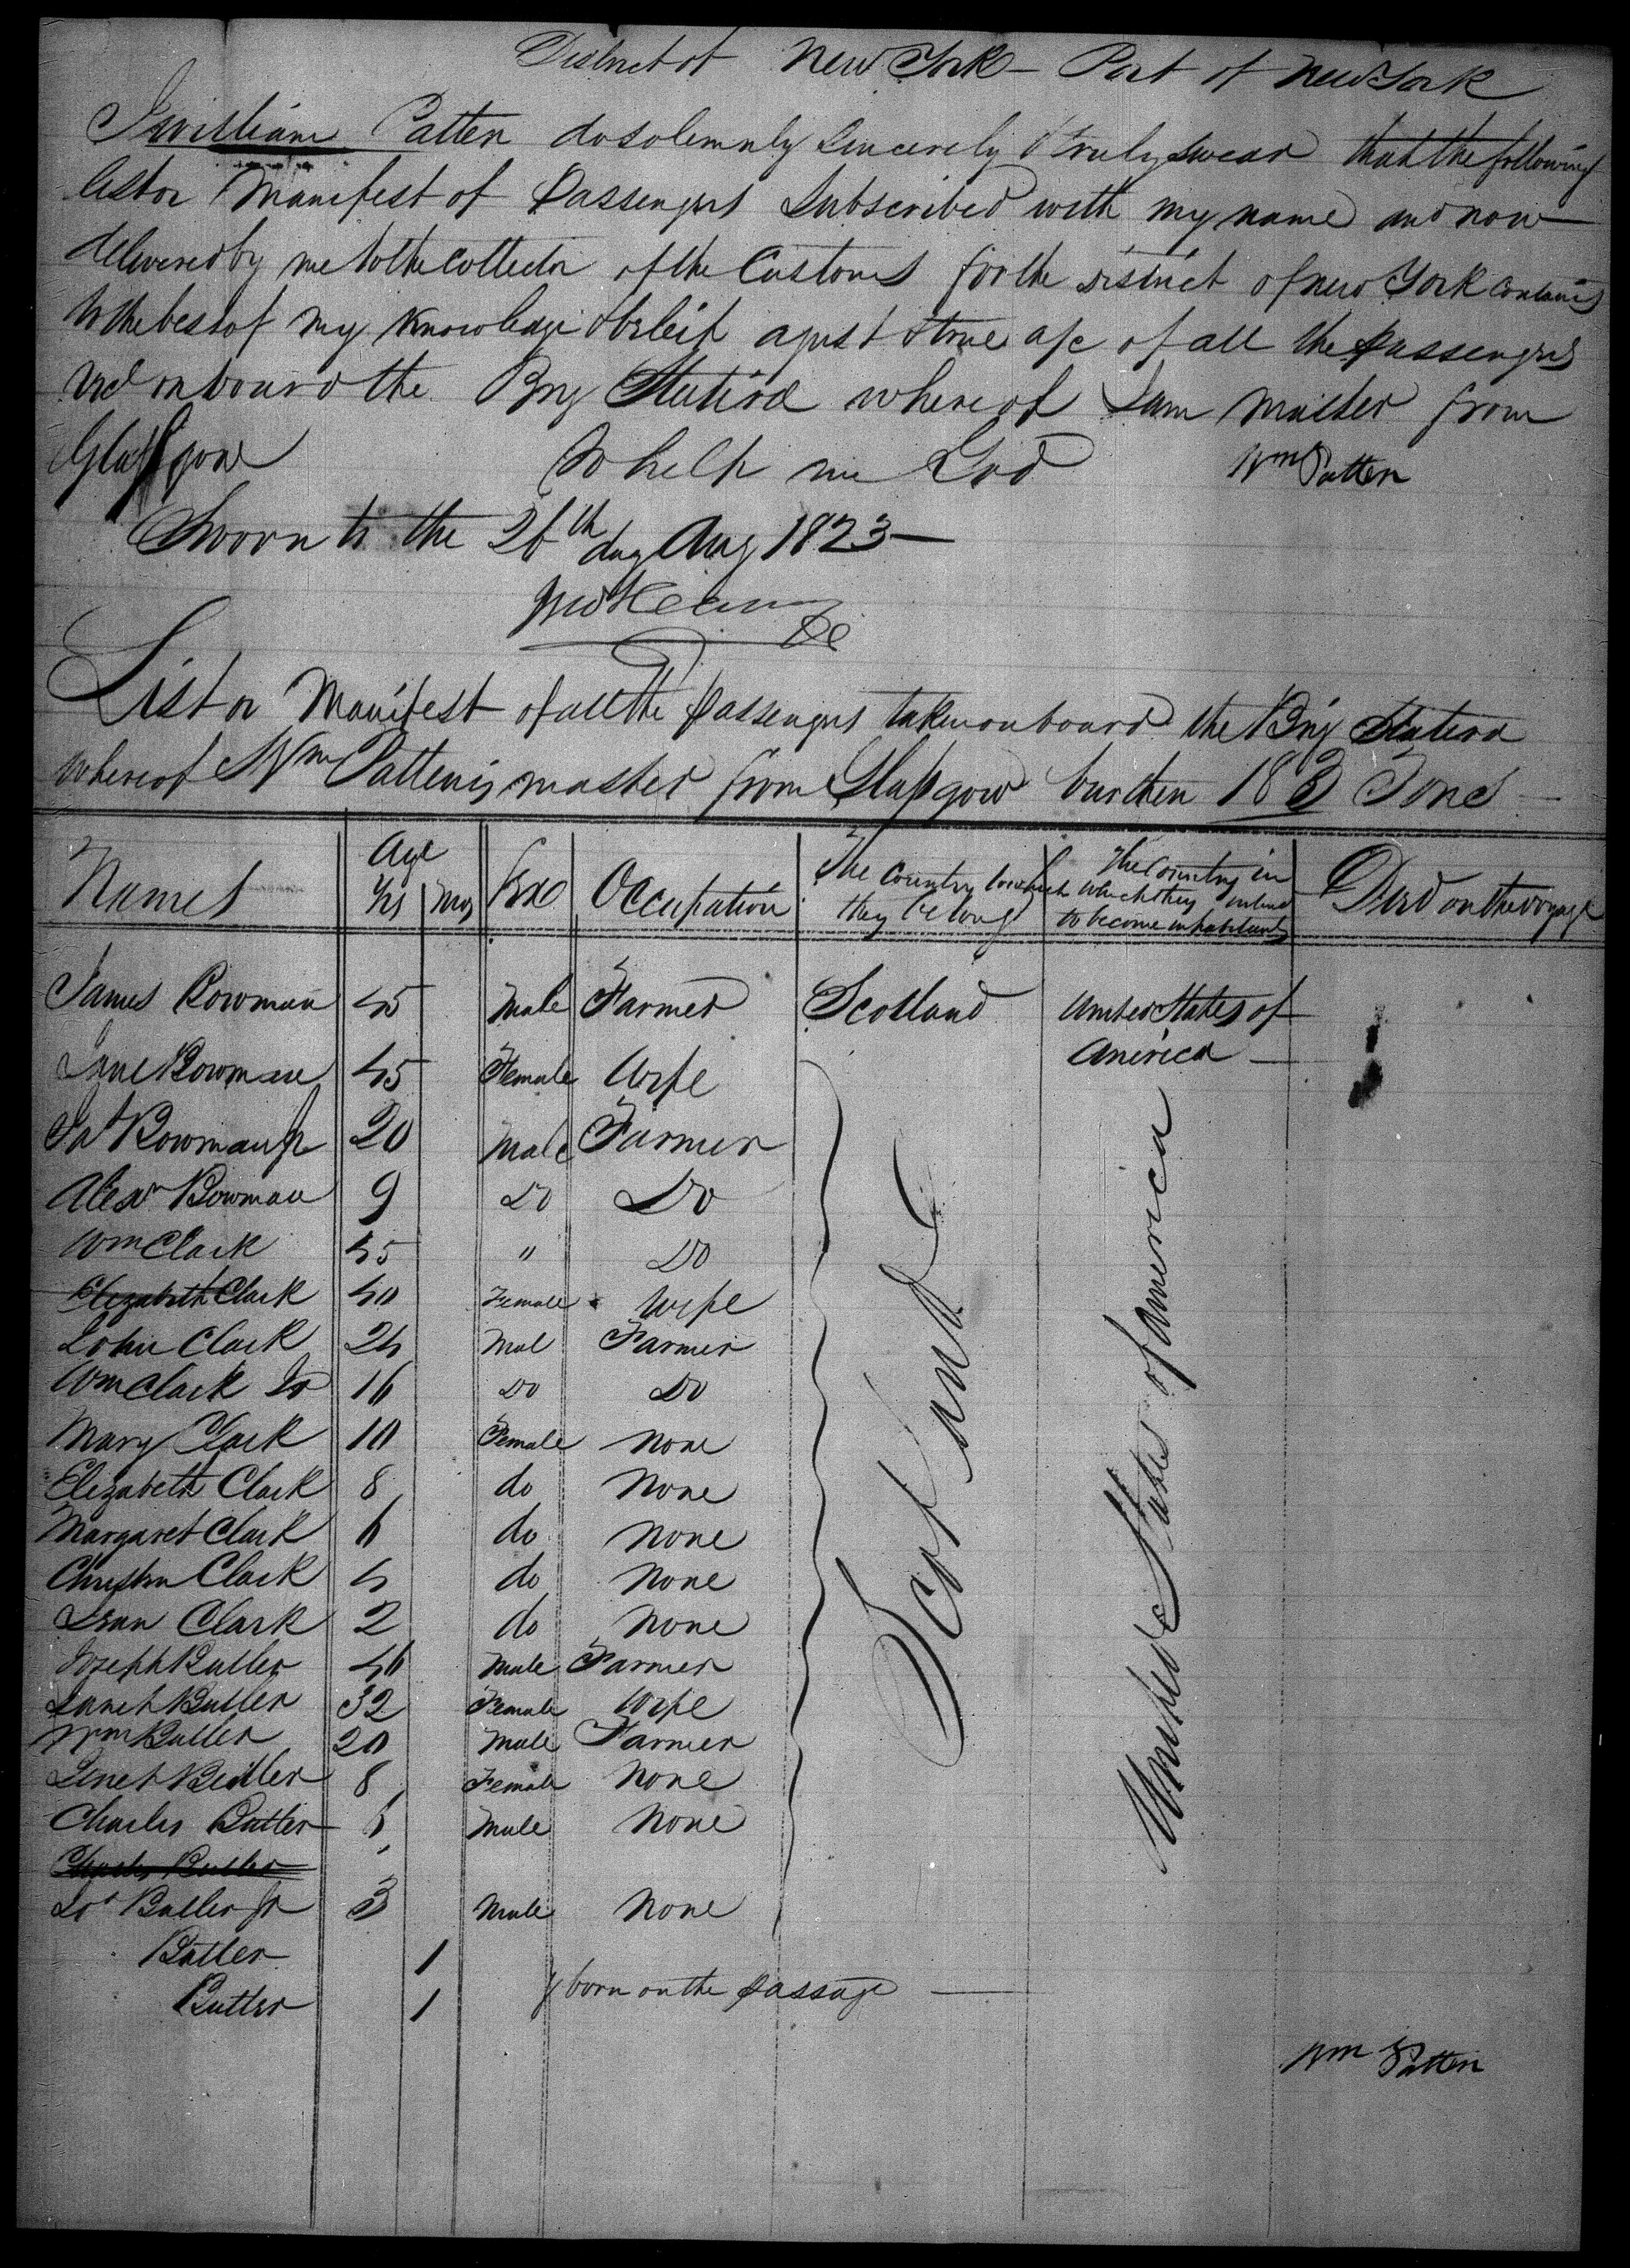 District of New York — Port of New York
I William Patten do solemnly Sincerely & truly swear that the following
list or Manifest of Passengers Subscribed with my name and now
delivered by me to the Collector of the Customs for the District of New York Contains
to the best of my Knowledge & beleif a just & true a/c of all the Passengers
recd on board the Brig Statira whereof I am Master from
Glassgow So help me God Wm Patten
Sworn to the 26th day Aug 1823 —
List or Manifest of all the Passengers taken on board the Brig Statira
whereof Wm Patten is master from Glassgow burthen 183 Tons —
Names Age Yrs Mos Sex Occupation The Country to which they belong The Country in which they intend to become inhabitants Died on the voyage
James Bowman 45 Male Farmer Scotland United States of America —
Jane Bowman 45 Female Wife
Js Bowman Jr 20 Male Farmer
Alexr Bowman 9 Do Do
Wm Clark 45 " Do
Elizabeth Clark 40 Female Wife
John Clark 24 Mal Farmer
Wm Clark Jr 16 Do Do
Mary Clark 10 Female None
Elizabeth Clark 8 do None
Margaret Clark 6 do None
Christin Clark 4 do None
Jean Clark 2 do None
Joseph Butler 46 Male Farmer
Janet Butler 32 Female Wife
Wm Butler 20 Male Farmer
Jenet Butler 8 Female None
Charles Butler 5 Male None
Charles Butler
Jos Butler Jr 3 Male None
Butler 1
Butler 1 } born on the Passage —
Scotland
United States of America
Wm Patten